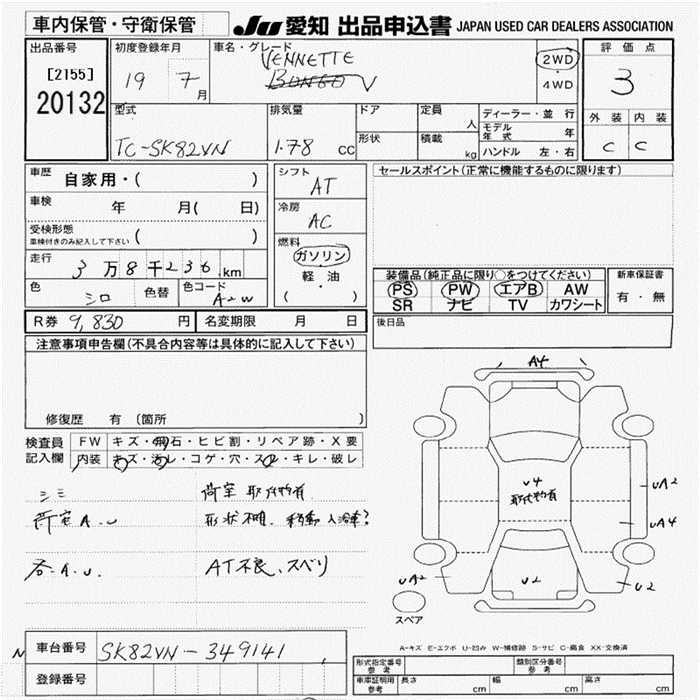 車内保管・守衛保管
JU 愛知 出品申込書 JAPAN USED CAR DEALERS ASSOCIATION
出品番号
[2155]
20132
初度登録年月
19 7月
車名・グレード
VENNETTE
BONGO V
2WD
・
4WD
評価点
3
外装 内装
C C
型式
TC-SK82VN
排気量
1.78 CC
ドア
形状
定員 人
積載 kg
ディーラー・並行
モデル年式 年
ハンドル 左・右
車歴 自家用・( )
車検 年 月( 日)
受検形態
車検付きのみ記入して下さい ( )
走行 3万8千236km
色 シロ 色替
色コード A2W
シフト AT
冷房 AC
燃料
ガソリン
軽・油
( )
セールスポイント(正常に機能するものに限ります)
装備品(純正品に限り○をつけてください)
PS PW エアB AW
SR ナビ TV カワシート
新車保証書
有・無
R券 9,830円
名変期限 月 日
後日品
注意事項申告欄(不具合内容等は具体的に記入して下さい)
修復歴 有 (箇所 )
検査員記入欄
FW キズ・飛石・ヒビ割・リペア跡・X要
内装 キズ・汚レ・コゲ・穴・スレ・キレ・破レ
シミ 荷室 取付物有
荷室A.U 形状不明. 移動入浴車?
各.A.U. AT不良、スベリ
A4
U4
取付物有
UA2
UA4
UA2
U2
U2
スペア
A-キズ E-エクボ U-凹み W-補修跡 S-サビ C-腐食 XX-交換済
N
車台番号 SK82VN-349141
登録番号
形式指定番号 参考
類別区分番号 参考
車庫証明用 参考 長さ cm 幅 cm 高さ cm